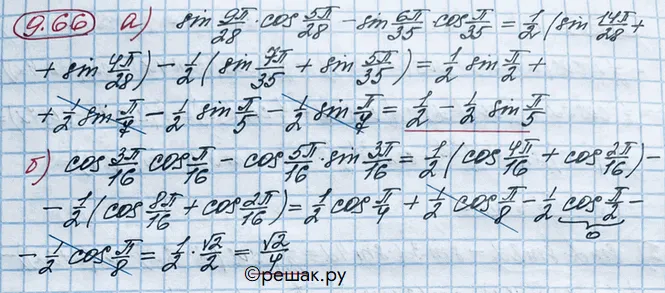 9.66 а) sin 9π/28 · cos 5π/28 − sin 6π/35 · cos π/35 = 1/2 (sin 14π/28 +
+ sin 4π/28) − 1/2 (sin 7π/35 + sin 5π/35) = 1/2 sin π/2 +
+ 1/2 sin π/7 − 1/2 sin π/5 − 1/2 sin π/7 = 1/2 − 1/2 sin π/5
б) cos 3π/16 cos π/16 − cos 5π/16 · sin 3π/16 = 1/2 (cos 4π/16 + cos 2π/16) −
− 1/2 (cos 8π/16 + cos 2π/16) = 1/2 cos π/4 + 1/2 cos π/8 − 1/2 cos π/2 −
0
− 1/2 cos π/8 = 1/2 · √2/2 = √2/4
©решак.ру